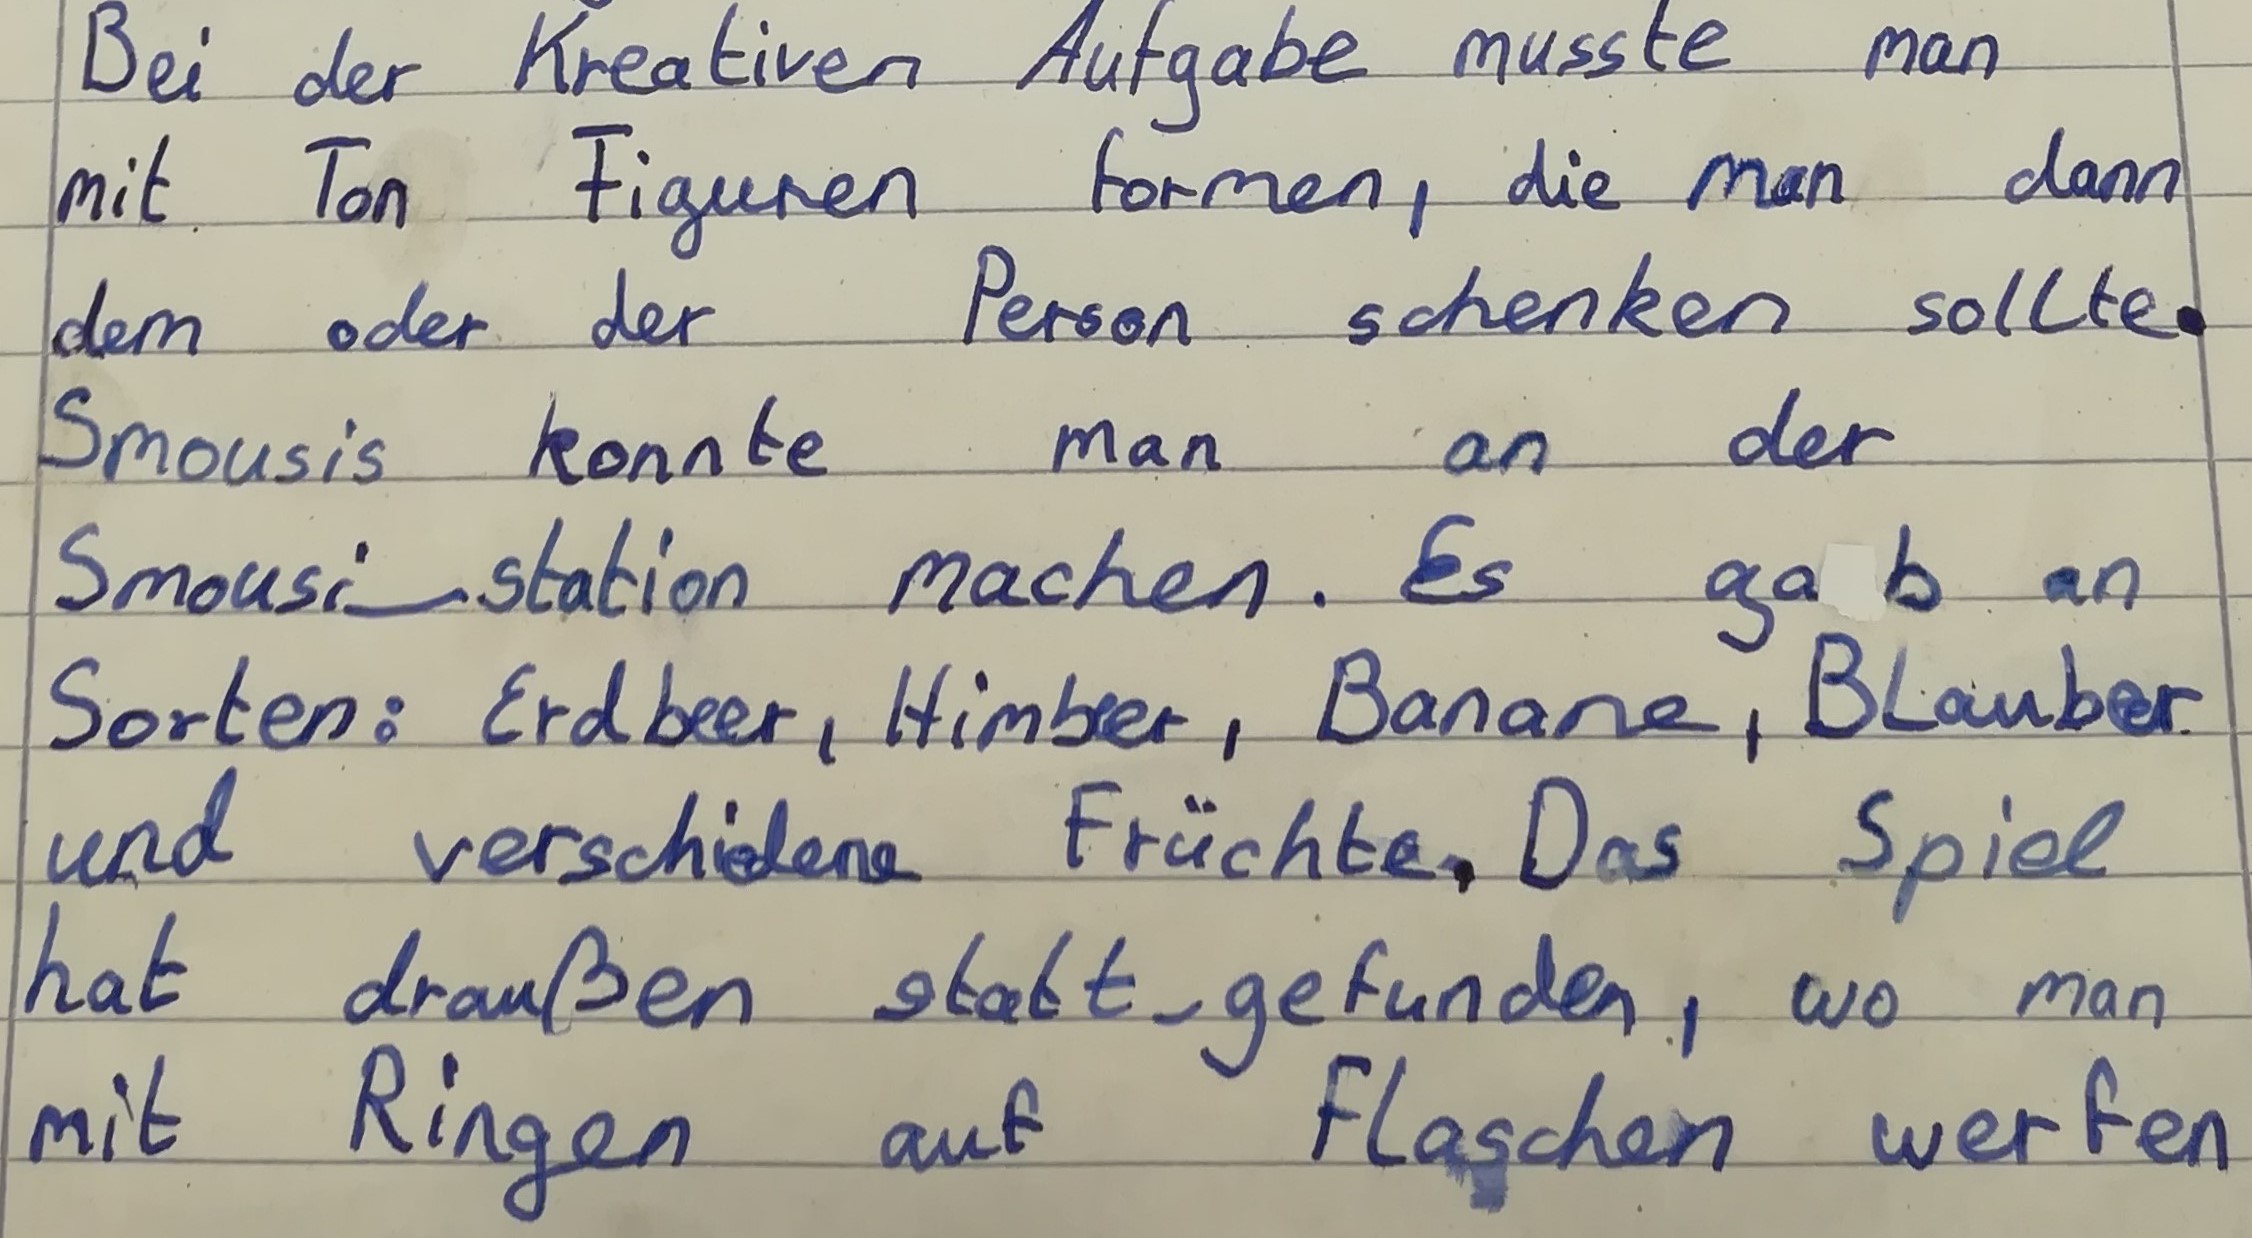 Bei der Kreativen Aufgabe musste man
mit Ton Figuren formen, die man dann
dem oder der Person schenken sollte.
Smousis konnte man an der
Smousi_station machen. Es gab an
Sorten: Erdbeer, Himbeer, Banane, Blauber
und verschidene Früchte. Das Spiel
hat draußen statt-gefunden, wo man
mit Ringen auf Flaschen werfen